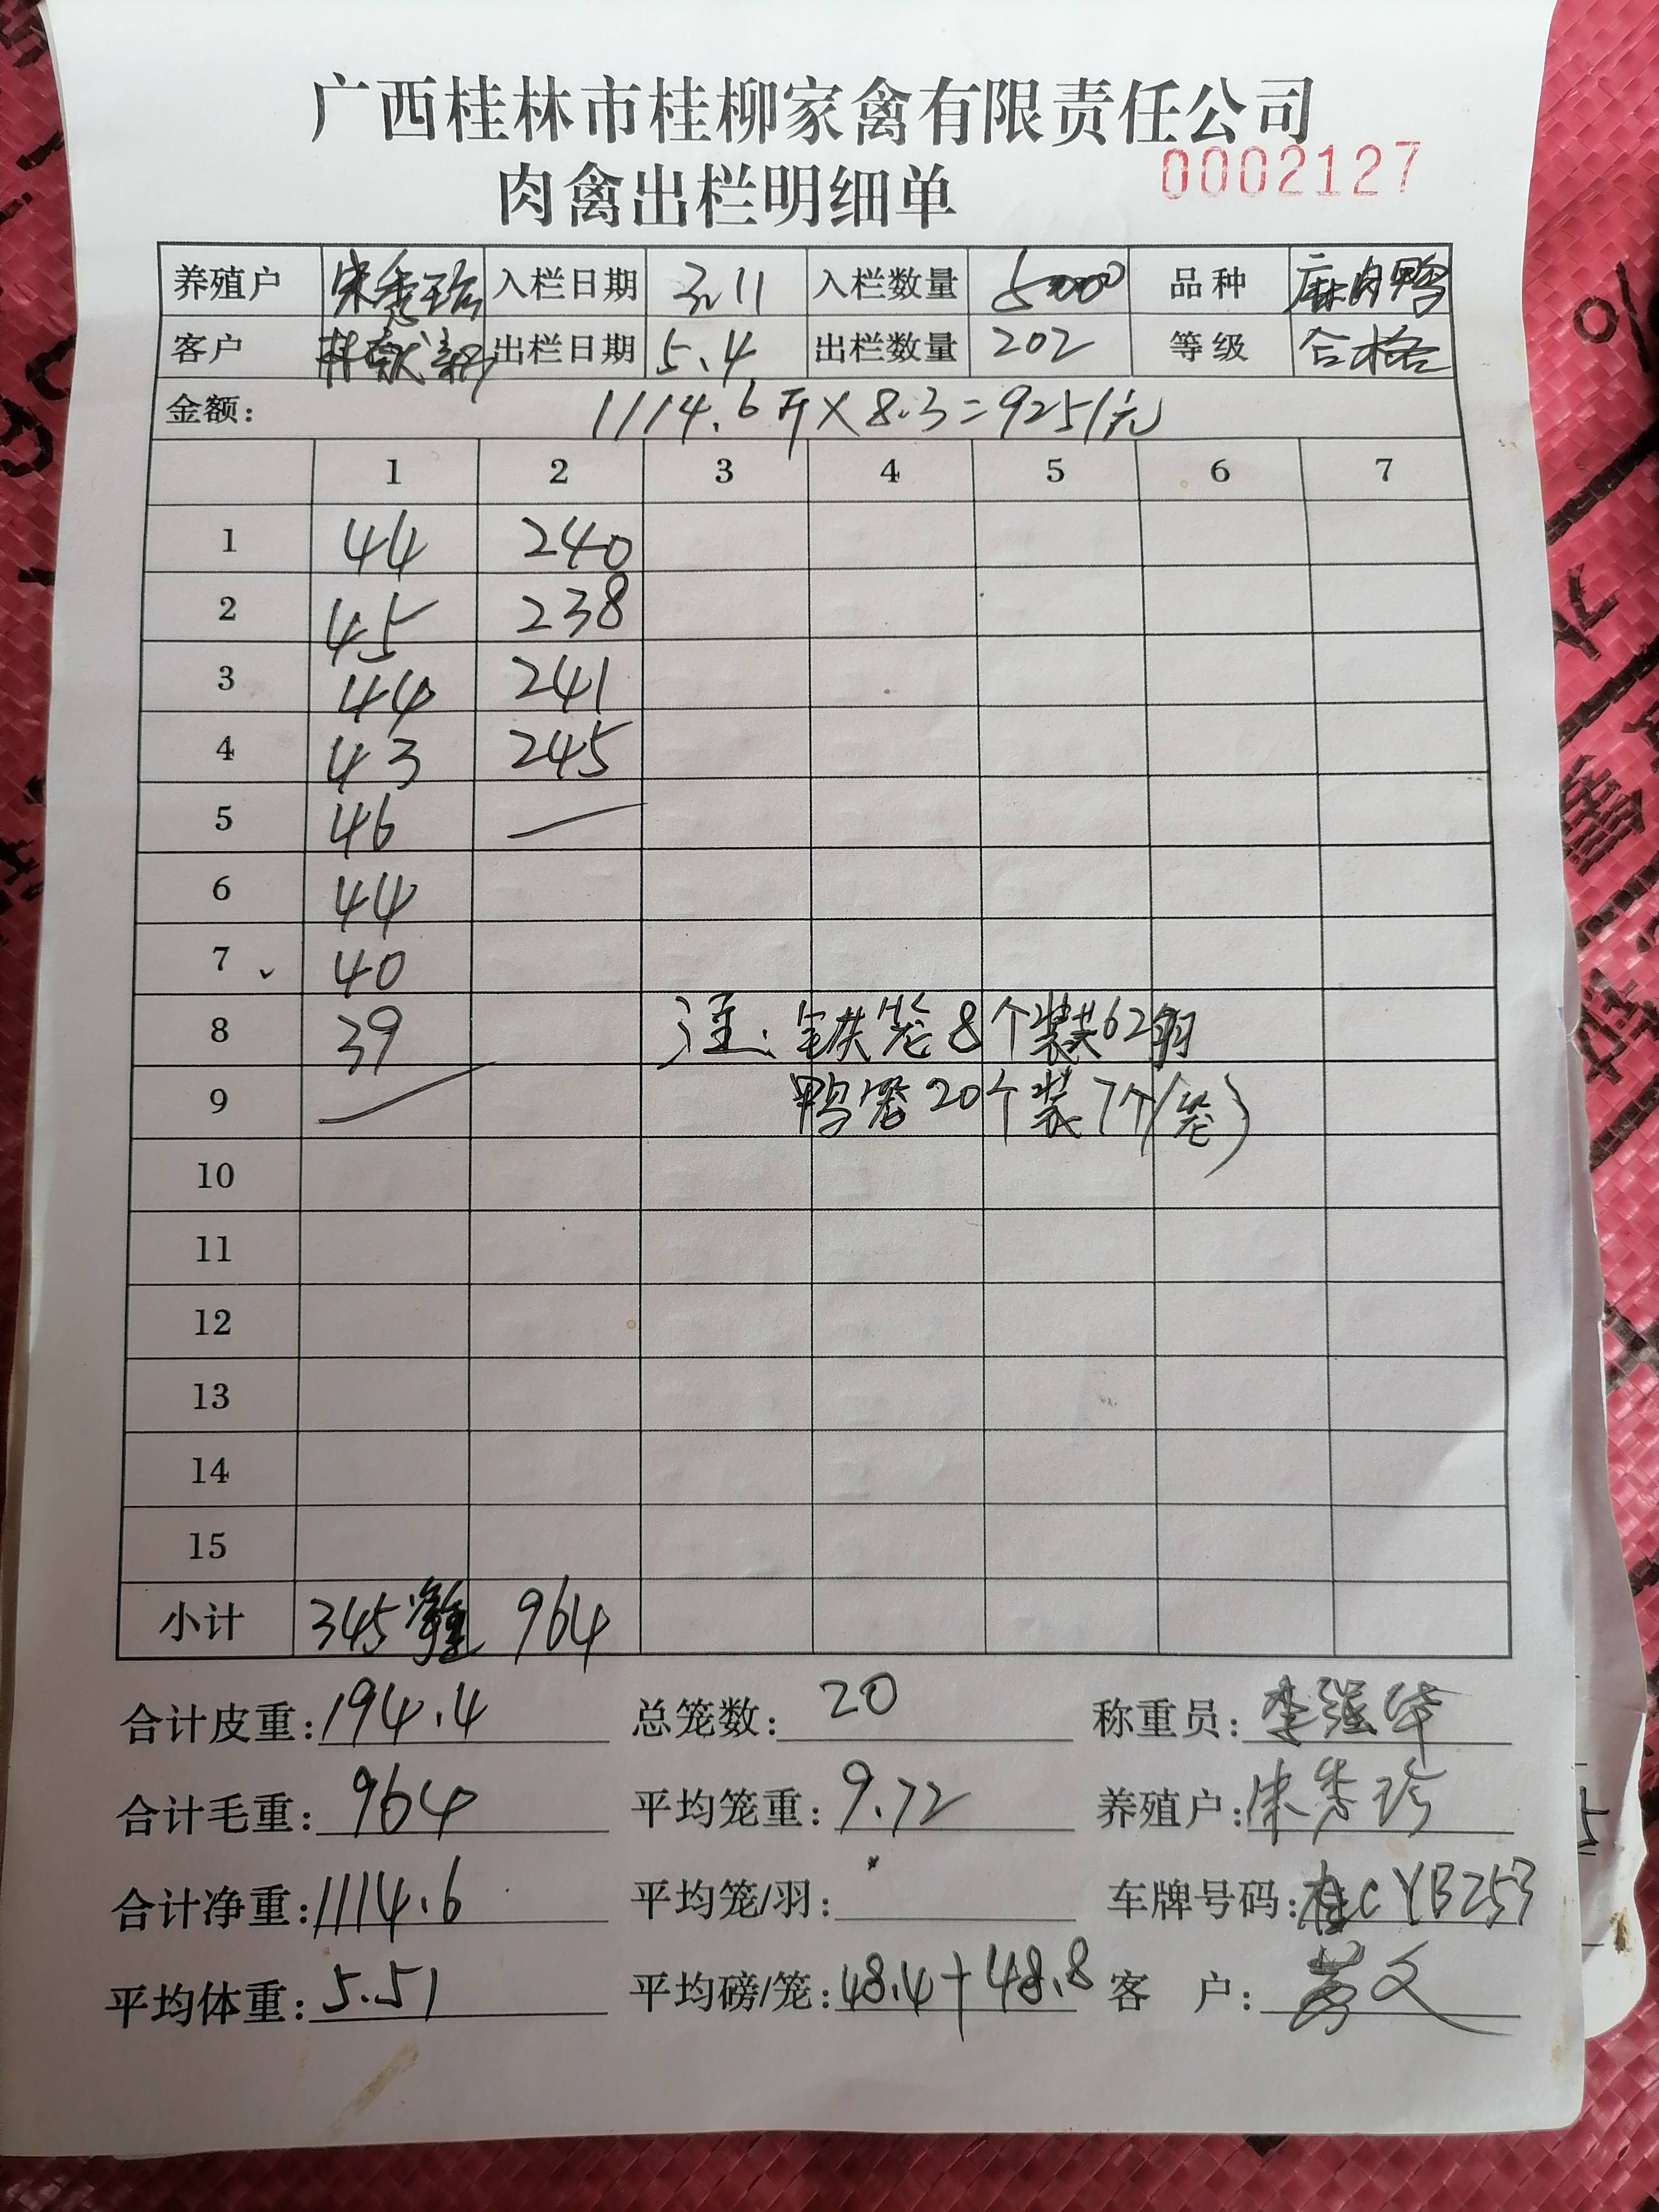 广西桂林市桂柳家禽有限责任公司
肉禽出栏明细单 0002127
养殖户 宋秀珍 入栏日期 3.11 入栏数量 5000 品种 麻肉鸭
客户 出栏日期 5.4 出栏数量 202 等级 合格
金额: 1114.6斤×8.3=9251元
1 2 3 4 5 6 7
1 44 240
2 45 238
3 44 241
4 43 245
5 46 —
6 44
7 40
8 39 注:铁笼8个装共62羽
9 — 鸭笼20个装7个/笼)
10
11
12
13
14
15
小计 345净重 964
合计皮重:194.4 总笼数:20 称重员:李强华
合计毛重:964 平均笼重:9.72 养殖户:宋秀珍
合计净重:1114.6 平均笼/羽: 车牌号码:桂CYB253
平均体重:5.51 平均磅/笼:48.4+48.8 客户: